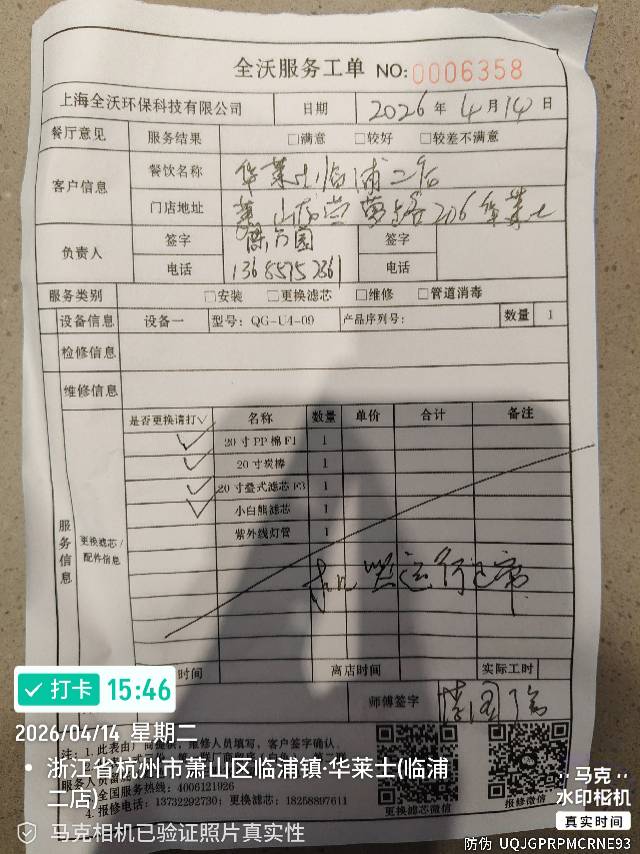 全沃服务工单 NO:0006358
上海全沃环保科技有限公司 日期 2026年4月14日
餐厅意见 服务结果 □满意 □较好 □较差不满意
客户信息 餐饮名称 华莱士临浦二店
门店地址 萧山 206华莱士
负责人 签字 陈方圆 签字
电话 电话
服务类别 □安装 □更换滤芯 □维修 □管道消毒
设备信息 设备一 型号: QG-U4-09 产品序列号: 数量 1
检修信息
维修信息
是否更换请打√ 名称 数量 单价 合计 备注
√ 20寸PP棉F1 1
√ 20寸炭棒 1
√ 20寸叠式滤芯F3 1
√ 小白熊滤芯 1
紫外线灯管 1
服务信息 更换滤芯/配件信息
运行正常
时间 离店时间 实际工时
师傅签字
注: 1. 此表由厂商提供,维修人员填写,客户签字确认。
服务人员留
全国服务热线: 4006121926
4. 报修电话: 13732292730; 更换滤芯: 18258897611
更换滤芯微信 报修微信
打卡 15:46
2026/04/14 星期二
浙江省杭州市萧山区临浦镇·华莱士(临浦
二店)
马克相机已验证照片真实性
马克
水印相机
真实时间
防伪 UQJGPRPMCRNE93